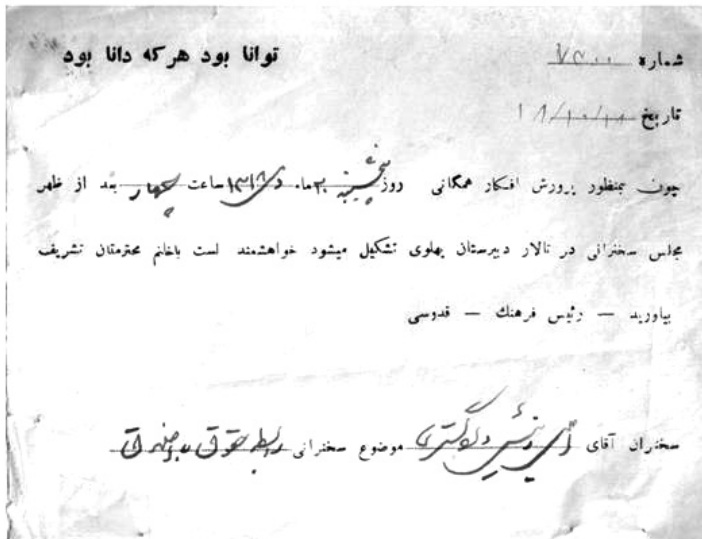 توانا بود هر که دانا بود
شماره ۷۴۰۰
تاریخ ۱۸/۱۰/۱۸
چون بمنظور پرورش افکار همگانی روز پنجشنبه ۲۰ ماه دی ۱۳۱۸ ساعت چهار بعد از ظهر
مجلس سخنرانی در تالار دبیرستان پهلوی تشکیل میشود خواهشمند است باخانم محترمتان تشریف
بیاورید — رئیس فرهنك — قدوسی
سخنران آقای رئیس دادگستری موضوع سخنرانی رابطه حقوق با اخلاق